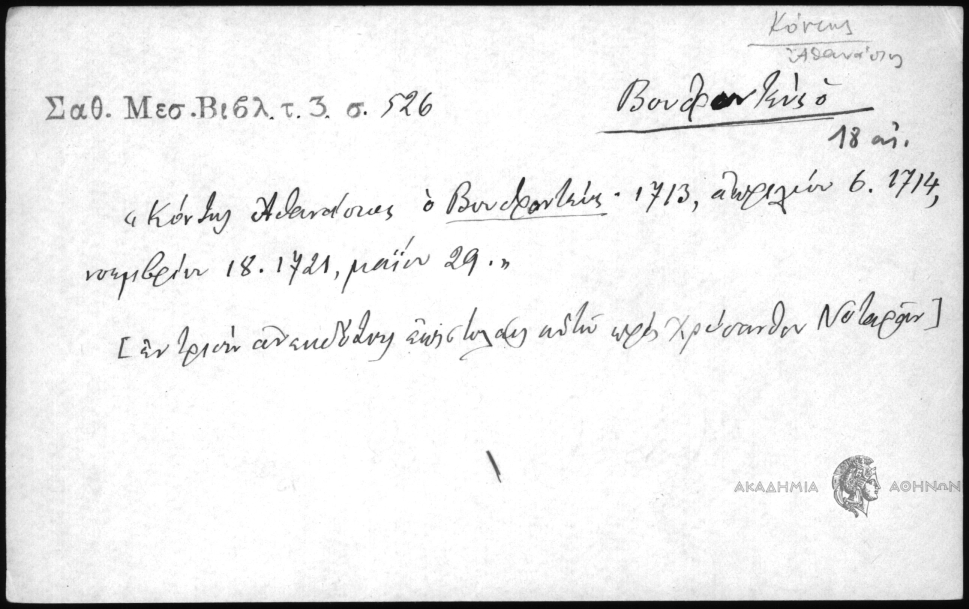 Κόντης
Ἀθανάσιος
Σαθ. Μεσ. Βιβλ. τ. 3. σ. 526
ὁ
18 αἰ.
« Κόντης Ἀθανάσιος ὁ 1713, ἀπριλίου 6. 1714,
νοεμβρίου 18. 1721, μαΐου 29. »
[ ἐν τρισὶν ἀνεκδότοις ἐπιστολαῖς αὐτοῦ πρὸς Χρύσανθον Νοταρᾶν ]
ΑΚΑΔΗΜΙΑ ΑΘΗΝΩΝ